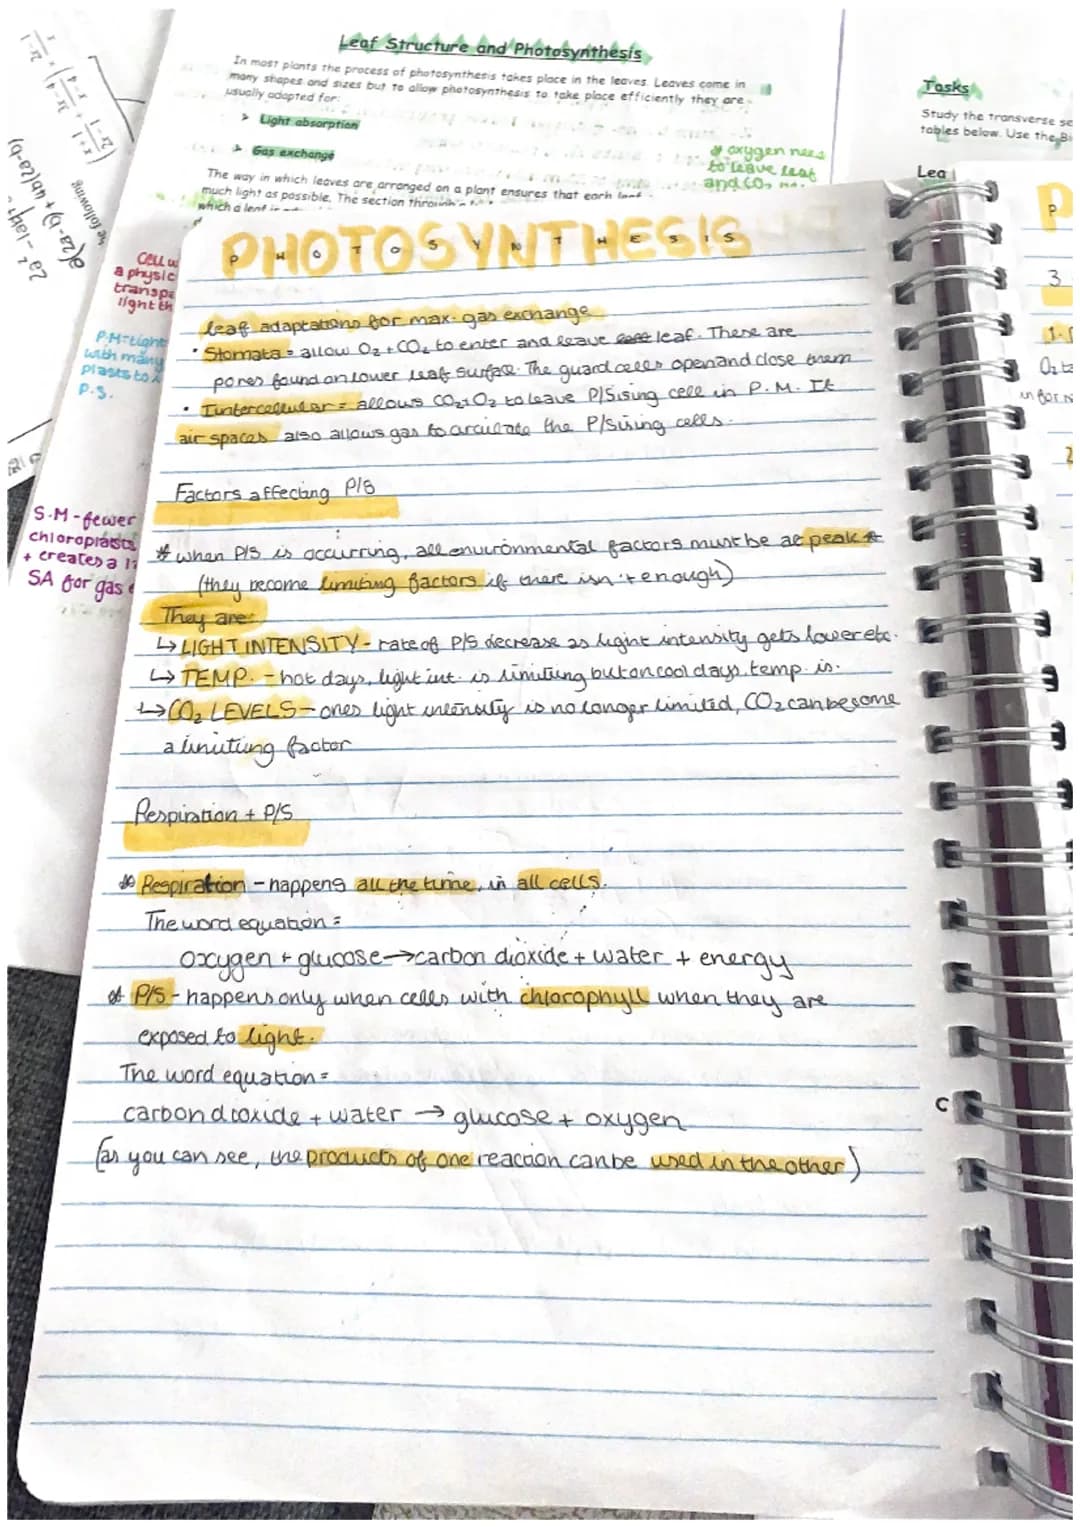 Leaf Structure and Photosynthesis
In most plants the process of photosynthesis takes place in the leaves. Leaves come in
many shapes and sizes but to allow photosynthesis to take place efficiently they are
usually adapted for:
> Light absorption
> Gas exchange
The way in which leaves are arranged on a plant ensures that each leaf
much light as possible. The section through
which a leaf is
* oxygen needs
to leave leaf
and CO2
Tasks
Study the transverse se
tables below. Use the Bi
Lea
Cell w
a physic
transpa
light th
P.M=tight
with many
plasts to
P.S.
S.M-fewer
chloroplasts
+ creates a
SA for gas e
PHOTOSYNTHESIS
PHOTOSYNTHESIS
leaf adaptations for max. gas exchange
• Stomata = allow O2 + CO2 to enter and leave leaf. These are
pores found on lower leaf surface. The guard cells open and close them
• Iintercellular = allows CO2+O2 to leave P/Sising cell in P.M. It
air spaces also allows gas to circulate the P/Sising cells.
Factors affecting P/S
* when P/S is occurring, all environmental factors must be at peak *
(they become limiting factors if there isn't enough)
They are:
↳ LIGHT INTENSITY - rate of P/S decrease as light intensity gets lower etc.
↳ TEMP. - hot days, light int. is limiting but on cool days, temp. is.
↳ CO2 LEVELS - ones light intensity is no longer limited, CO2 can become
a limiting factor
Respiration + P/S
* Respiration - happens all the time, in all cells.
The word equation =
oxygen + glucose → carbon dioxide + water + energy
* P/S - happens only when cells with chlorophyll when they are
exposed to light.
The word equation =
carbon dioxide + water → glucose + oxygen
(as you can see, the products of one reaction can be used in the other)
P
P
3
1.
O2
in for
2
C